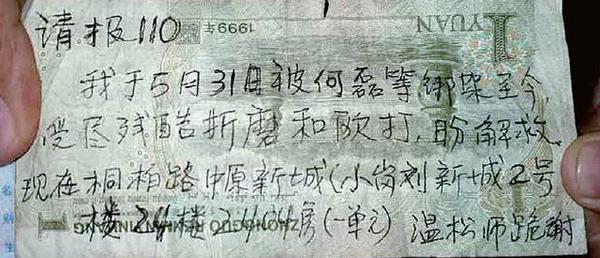 请报110
1 YUAN
1999年
我于5月31日被何磊等绑架至今,
受尽残酷折磨和欧打,盼解救。
现在桐柏路中原新城(小岗刘新城2号
楼24楼2404房(一单元) 温松师跪谢
ZHONGGUO RENMIN YINHANG
1